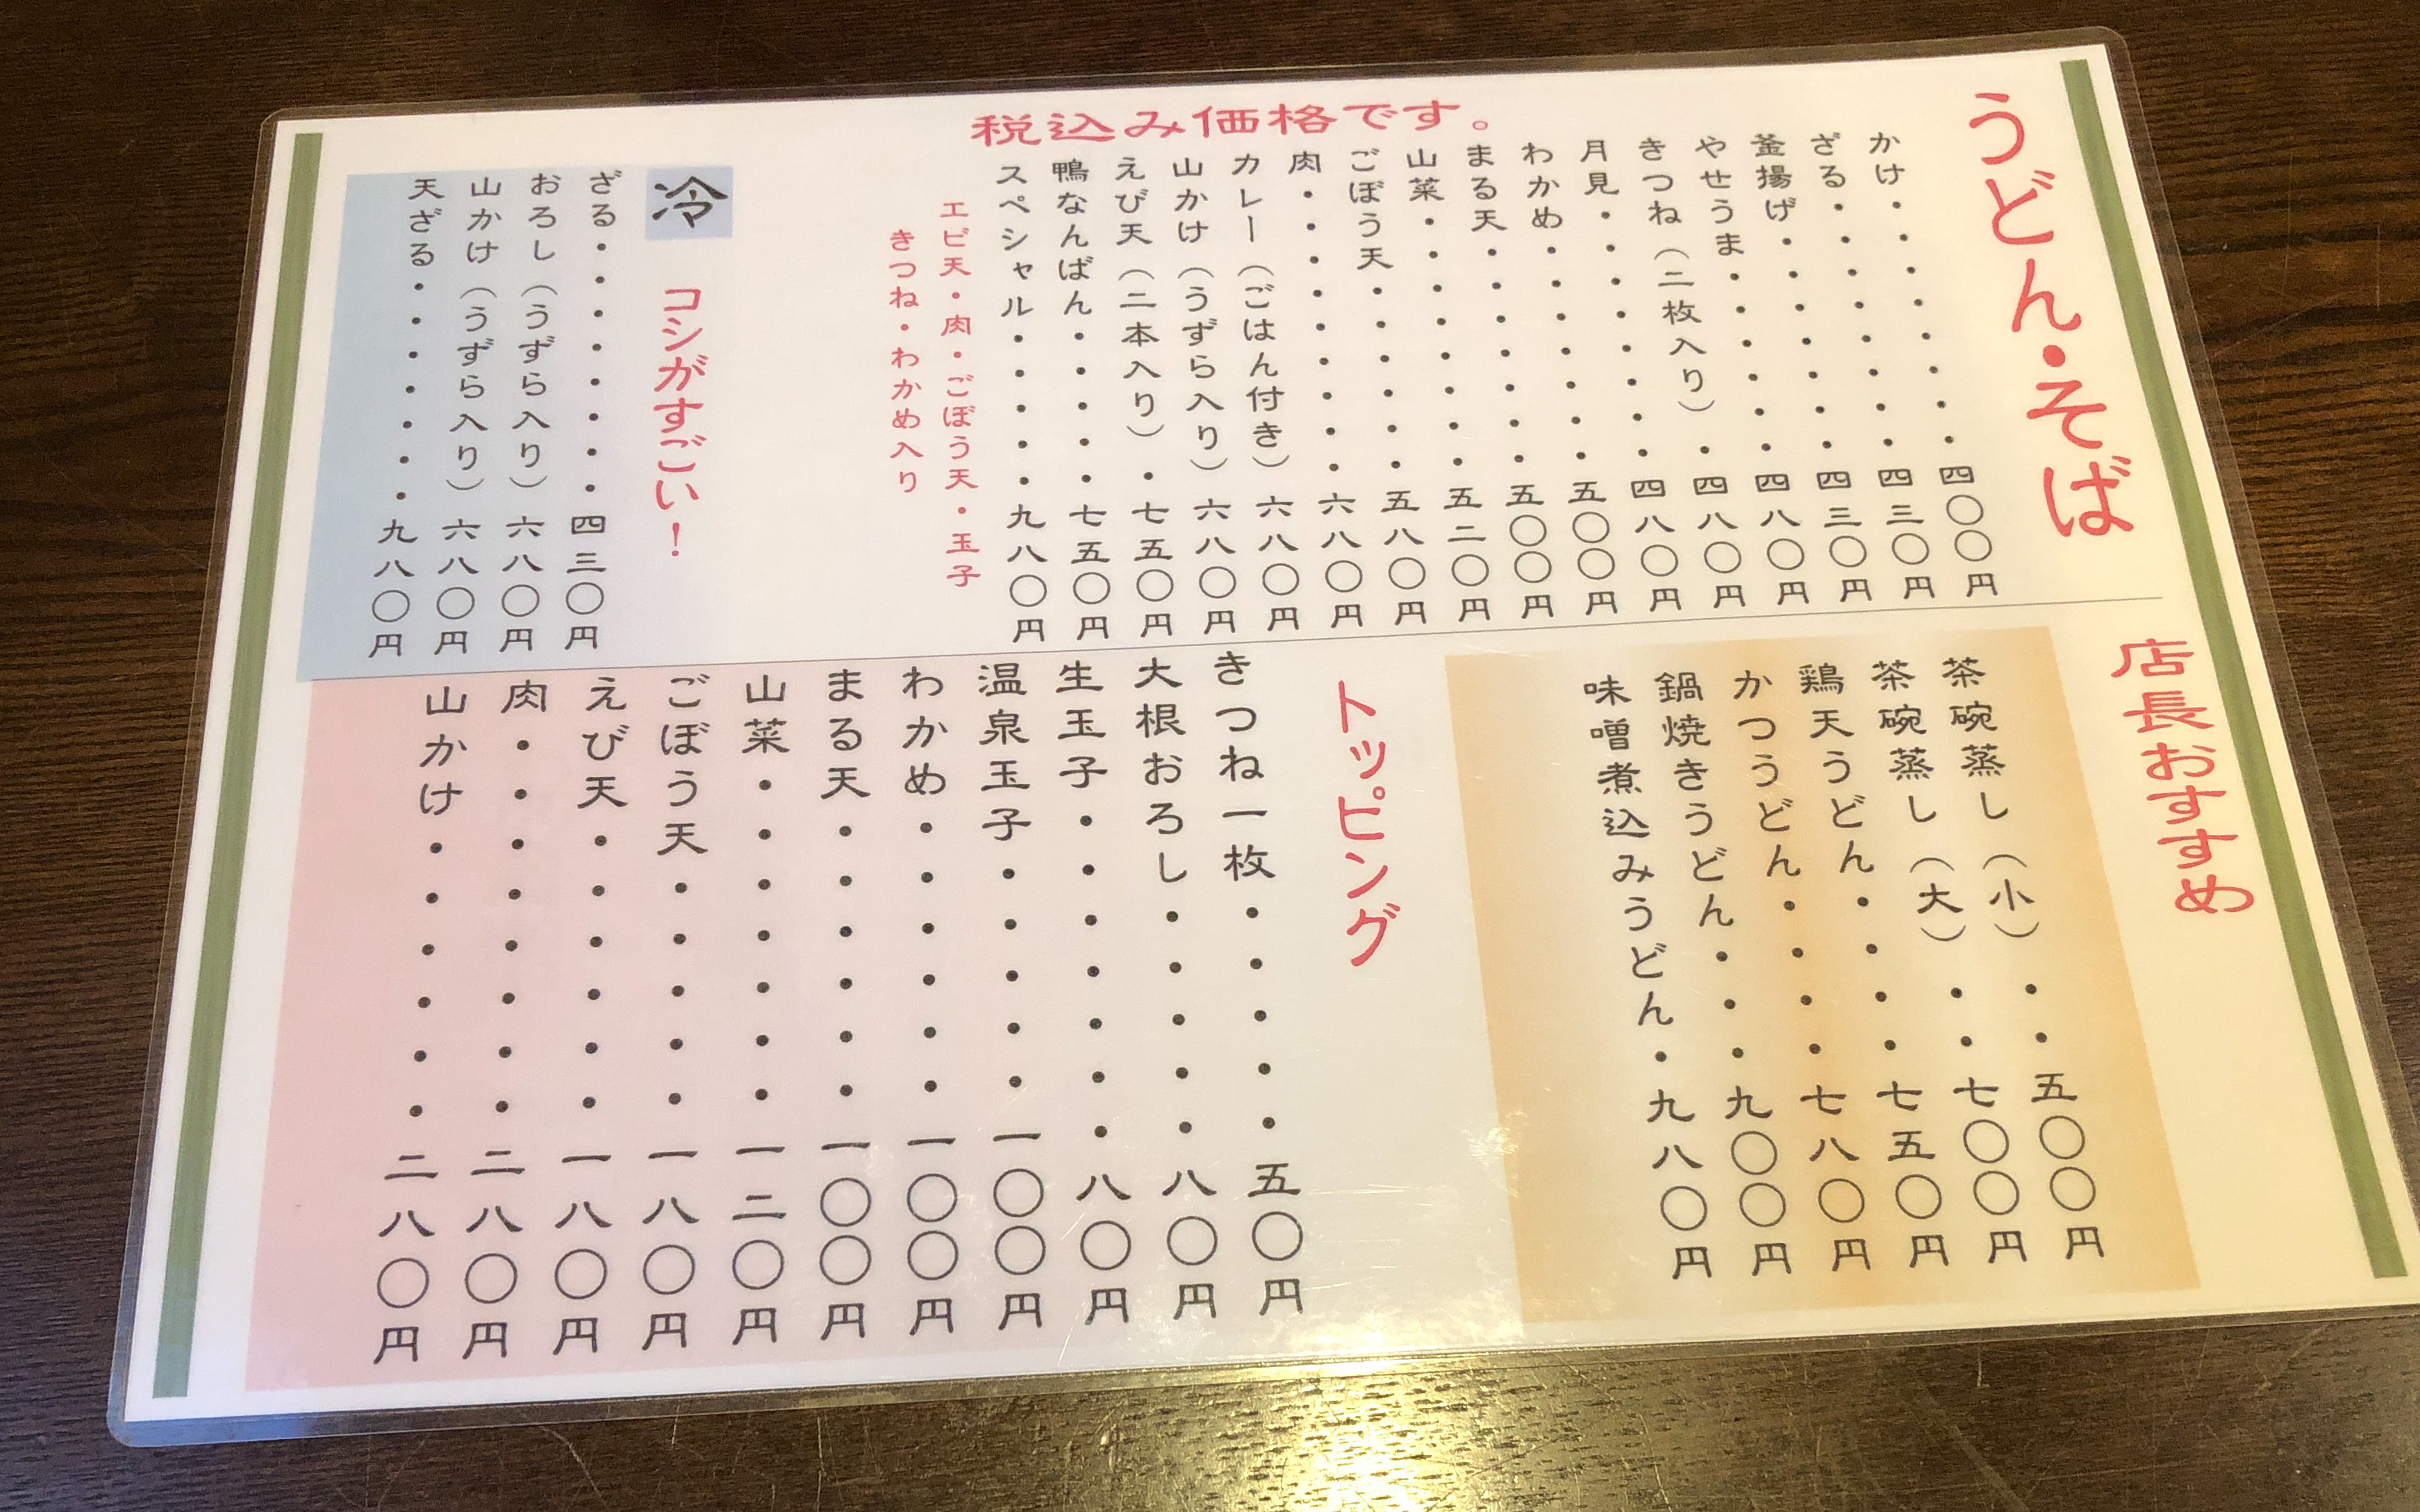 うどん・そば
税込み価格です。
かけ・・・・・・・・四〇〇円
ざる・・・・・・・・四三〇円
釜揚げ・・・・・・・四三〇円
やせうま・・・・・・四八〇円
きつね（二枚入り）・四八〇円
月見・・・・・・・・四八〇円
わかめ・・・・・・・五〇〇円
まる天・・・・・・・五〇〇円
山菜・・・・・・・・五二〇円
ごぼう天・・・・・・五八〇円
肉・・・・・・・・・六八〇円
カレー（ごはん付き）六八〇円
山かけ（うずら入り）六八〇円
えび天（二本入り）・七五〇円
鴨なんばん・・・・・七五〇円
スペシャル・・・・・九八〇円
エビ天・肉・ごぼう天・玉子
きつね・わかめ入り
冷
コシがすごい！
ざる・・・・・・・・四三〇円
おろし（うずら入り）六八〇円
山かけ（うずら入り）六八〇円
天ざる・・・・・・・九八〇円
店長おすすめ
茶碗蒸し（小）・・五〇〇円
茶碗蒸し（大）・・七〇〇円
鶏天うどん・・・・七五〇円
かつうどん・・・・七八〇円
鍋焼きうどん・・・九〇〇円
味噌煮込みうどん・九八〇円
トッピング
きつね一枚・・・・・五〇円
大根おろし・・・・・八〇円
生玉子・・・・・・・八〇円
温泉玉子・・・・・一〇〇円
わかめ・・・・・・一〇〇円
まる天・・・・・・一〇〇円
山菜・・・・・・・一二〇円
ごぼう天・・・・・一八〇円
えび天・・・・・・一八〇円
肉・・・・・・・・二八〇円
山かけ・・・・・・二八〇円